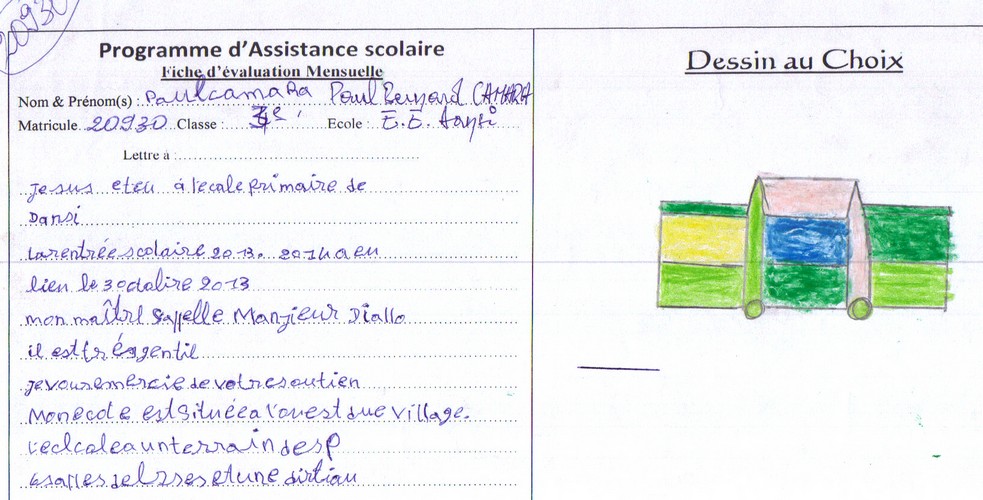 20930
Programme d'Assistance scolaire
Fiche d'évaluation Mensuelle
Nom & Prénom(s) : Paulcamara Paul Bernard CAMARA
Matricule 20930 Classe : 3e Ecole : E.E.
Lettre à :
Je sus eteu à l'ecale primaire de
Dansi
la rentrée scolaire 2013. 2014 a eu
lien le 3 octalire 2013
mon maître Sappelle Monsieur Diallo
il est trés gentil
je vous remercie de votre soutien
Mon ecole est située a l'ouest due village.
l'eclcale a un terrain de sp
et une
Dessin au Choix